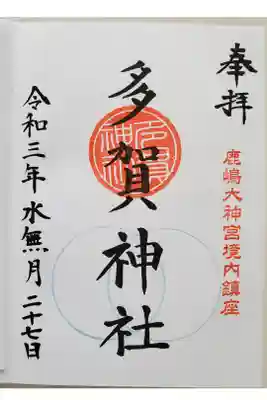 奉拝
鹿嶋大神宮境内鎮座
多賀神社
令和三年水無月二十七日